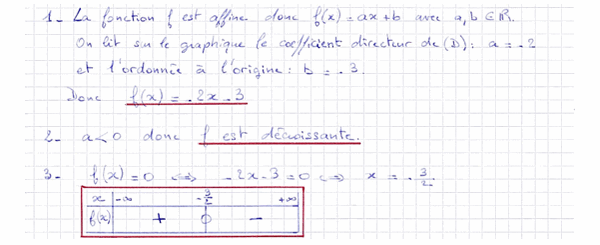 1- La fonction f est affine donc f(x) = ax+b avec a,b ∈ ℝ.
On lit sur le graphique le coefficient directeur de (D): a = -2
et l'ordonnée à l'origine: b = -3.
Donc f(x) = -2x-3
2- a<0 donc f est décroissante.
3- f(x)=0 ⟺ -2x-3=0 ⟺ x = -3/2.
x -∞ -3/2 +∞
f(x) + 0 -